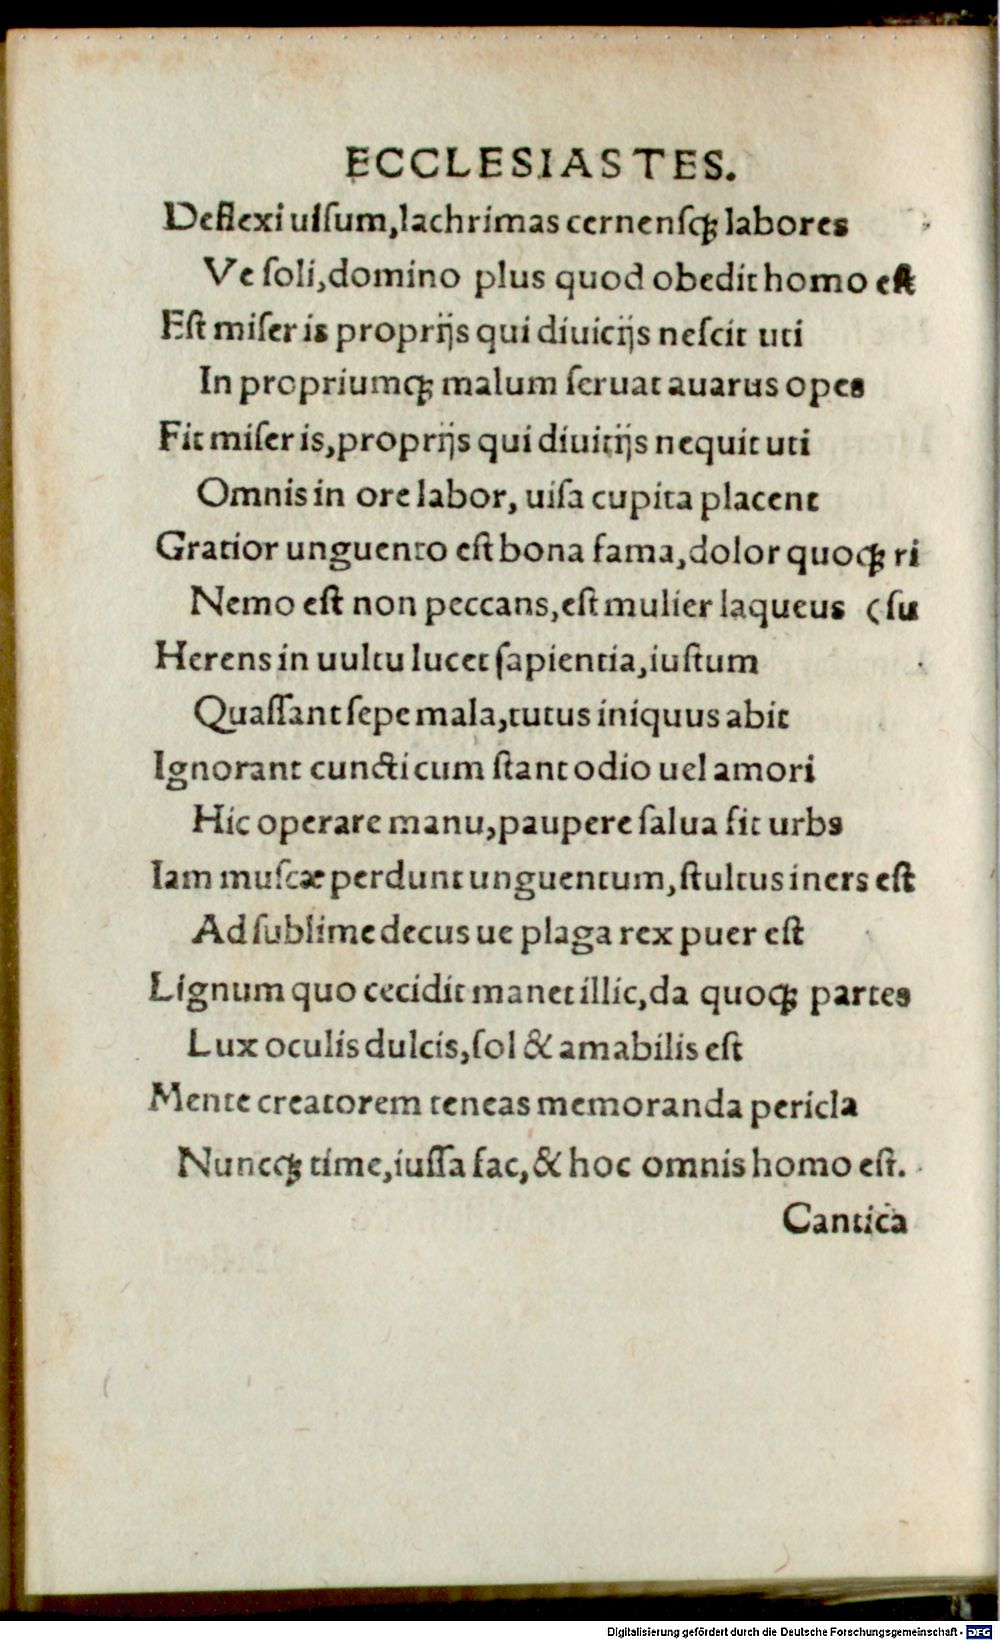 ECCLESIASTES.
Deflexi uisum,lachrimas cernensꝙ labores
Ve soli,domino plus quod obedit homo est
Est miser is proprijs qui diuicijs nescit uti
In propriumꝙ malum seruat auarus opes
Fit miser is,proprijs qui diuitijs nequit uti
Omnis in ore labor, uisa cupita placent
Gratior unguento est bona fama,dolor quoꝙ ri
Nemo est non peccans,est mulier laqueus (su
Herens in uultu lucet sapientia,iustum
Quassant sepe mala,tutus iniquus abit
Ignorant cuncti cum stant odio uel amori
Hic operare manu,paupere salua fit urbs
Iam muscæ perdunt unguentum,stultus iners est
Ad sublime decus ue plaga rex puer est
Lignum quo cecidit manet illic,da quoꝙ partes
Lux oculis dulcis,sol & amabilis est
Mente creatorem teneas memoranda pericla
Nuncꝙ time,iussa fac,& hoc omnis homo est.
Cantica
Digitalisierung gefördert durch die Deutsche Forschungsgemeinschaft - DFG